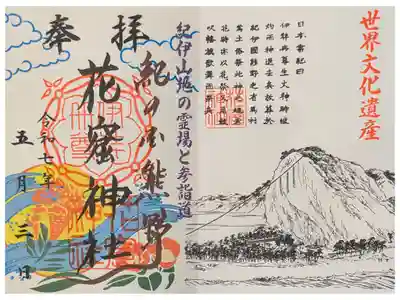 世界文化遺産
日本書紀曰
伊弉冉尊生火神時被
灼而神退去矣故葬於
紀伊國熊野之有馬村
焉土俗祭此神之魂者
紀伊山地の霊場と参詣道
奉拝
紀の国熊野
花窟神社
令和七年
五月三日